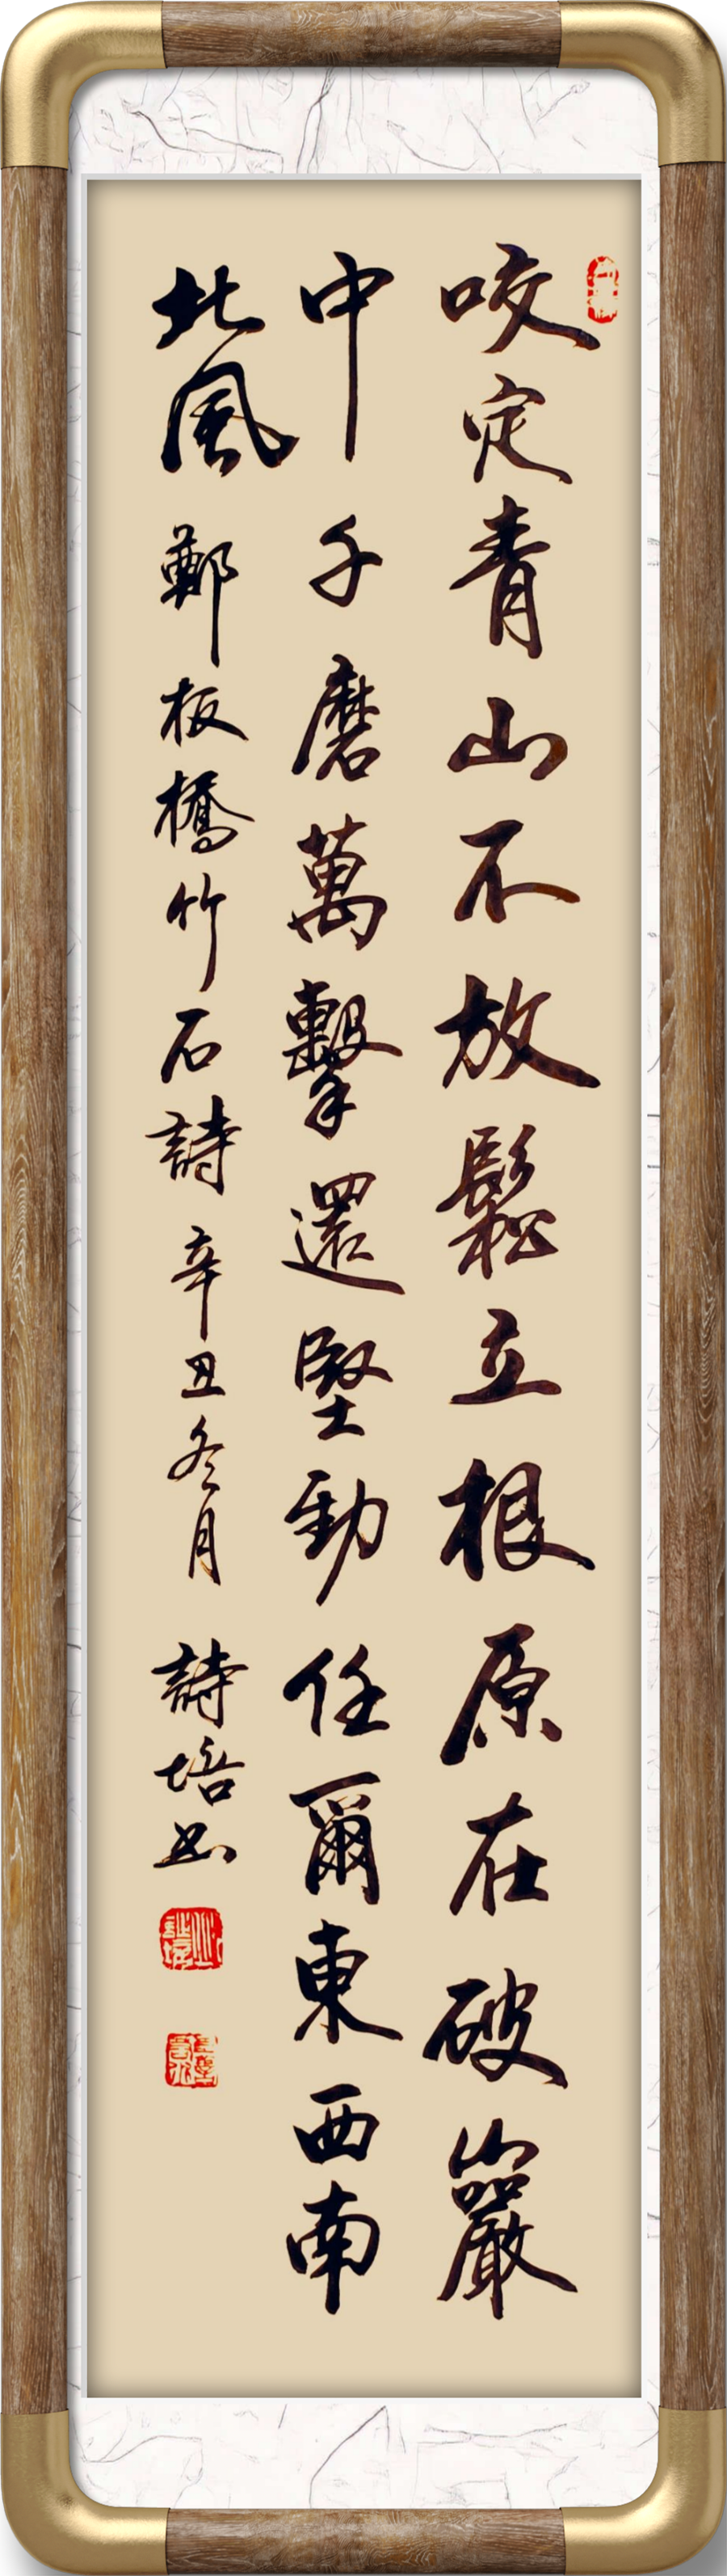 咬定青山不放鬆立根原在破巖
中千磨萬擊還堅勁任爾東西南
北風 鄭板橋竹石詩 辛丑冬月 詩培書